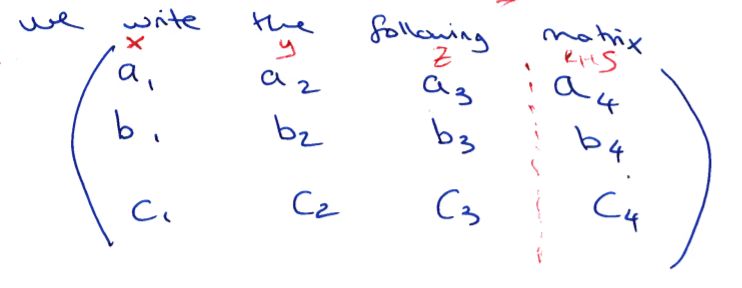 we write the following matrix
x y z RHS
a₁ a₂ a₃ a₄
b₁ b₂ b₃ b₄
c₁ c₂ c₃ c₄